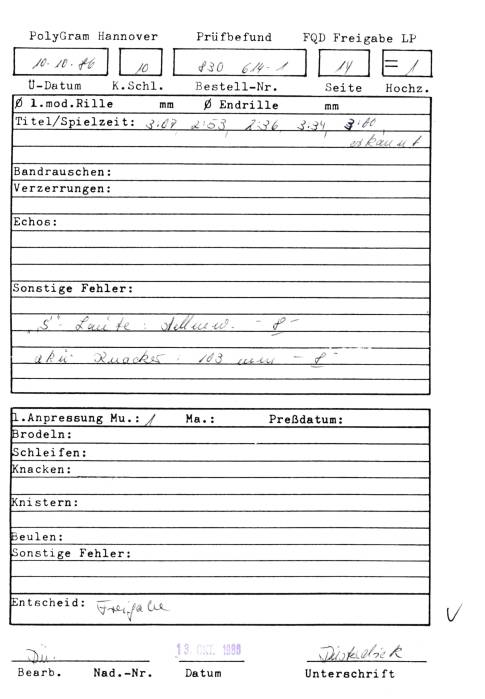 PolyGram Hannover Prüfbefund FQD Freigabe LP
10.10.86 10 830 614-1 14 = 1
U-Datum K.Schl. Bestell-Nr. Seite Hochz.
Ø 1.mod.Rille mm Ø Endrille mm
Titel/Spielzeit: 3:07, 2:53, 2:36, 3:34, 3:00,
erkannt
Bandrauschen:
Verzerrungen:
Echos:
Sonstige Fehler:
"S"- Laute: -8-
Knacker: 103 mm -8-
1.Anpressung Mu.: 1 Ma.: Preßdatum:
Brodeln:
Schleifen:
Knacken:
Knistern:
Beulen:
Sonstige Fehler:
Entscheid: Freigabe
Dü. 13. OKT. 1986
Bearb. Nad.-Nr. Datum Unterschrift